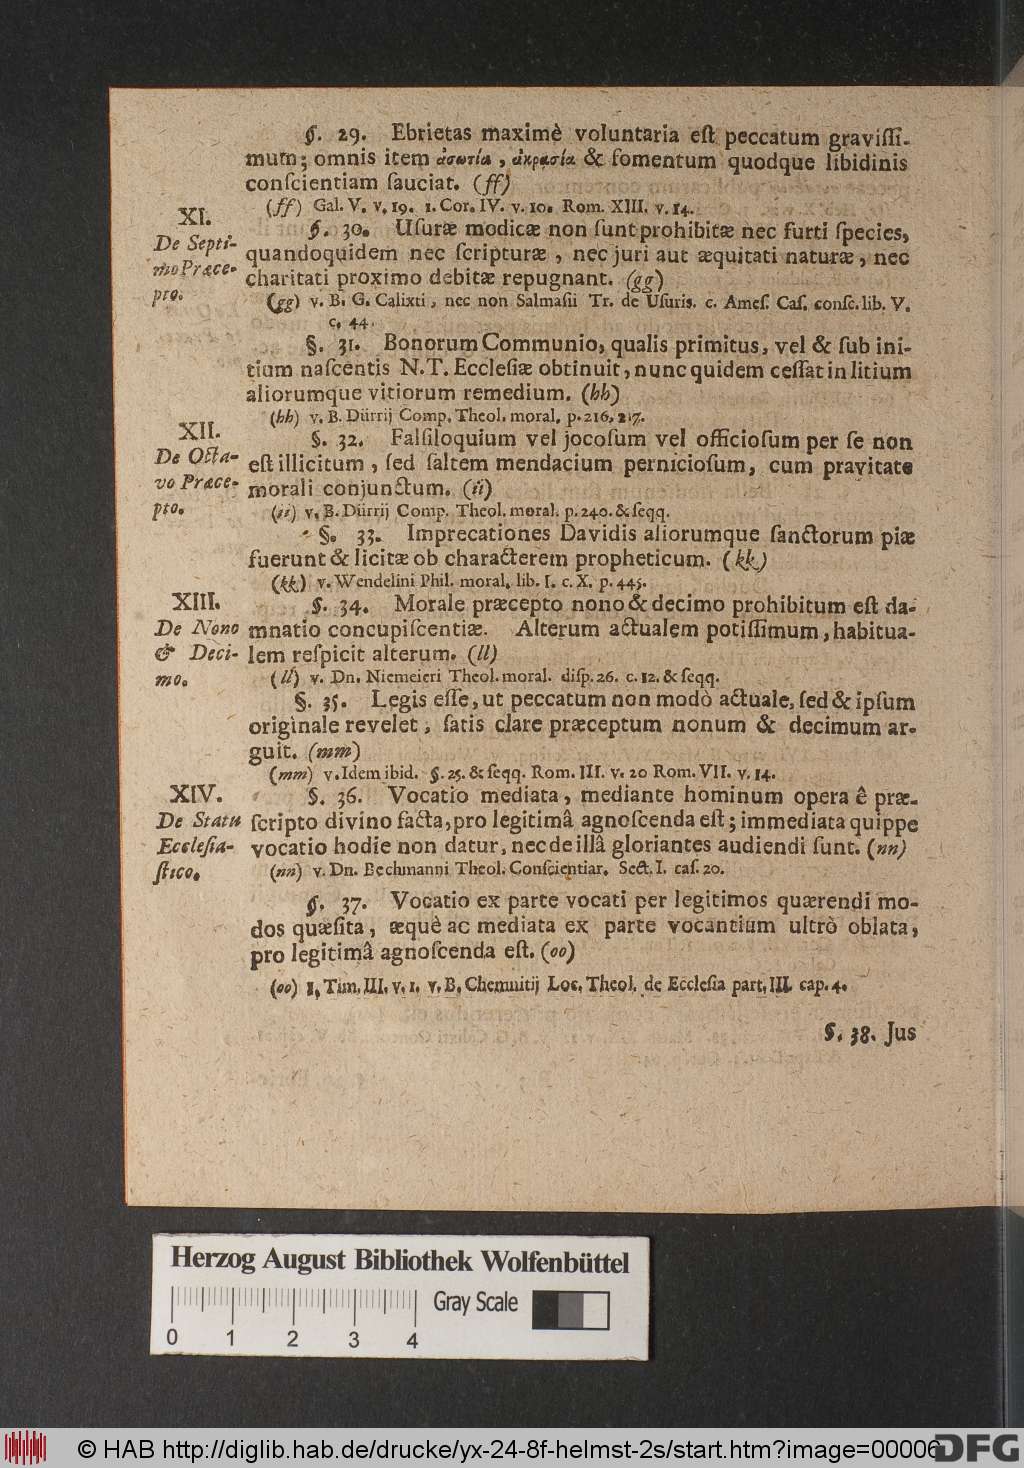 §. 29. Ebrietas maximè voluntaria eſt peccatum graviſſi-
mum; omnis item ἀσωτία, ἀκρασία & fomentum quodque libidinis
conſcientiam ſauciat. (ff)
(ff) Gal. V. v. 19. 1. Cor. IV. v. 10. Rom. XIII. v. 14.
XI.
De Septi-
mo Præce-
pto.
§. 30. Uſuræ modicæ non ſunt prohibitæ nec furti ſpecies,
quandoquidem nec ſcripturæ, nec juri aut æquitati naturæ, nec
charitati proximo debitæ repugnant. (gg)
(gg) v. B. G. Calixti, nec non Salmaſii Tr. de Uſuris. c. Ameſ. Caſ. conſc. lib. V.
c. 44.
§. 31. Bonorum Communio, qualis primitus, vel & ſub ini-
tium naſcentis N. T. Eccleſiæ obtinuit, nunc quidem ceſſat in litium
aliorumque vitiorum remedium. (hh)
(hh) v. B. Dürrij Comp. Theol. moral. p. 216, 217.
XII.
De Octa-
vo Præce-
pto.
§. 32. Falſiloquium vel jocoſum vel officioſum per ſe non
eſt illicitum, ſed ſaltem mendacium pernicioſum, cum pravitate
morali conjunctum. (ii)
(ii) v. B. Dürrij Comp. Theol. moral. p. 240. & ſeqq.
§. 33. Imprecationes Davidis aliorumque ſanctorum piæ
fuerunt & licitæ ob characterem propheticum. (kk)
(kk) v. Wendelini Phil. moral. lib. I. c. X. p. 445.
XIII.
De Nono
& Deci-
mo.
§. 34. Morale præcepto nono & decimo prohibitum eſt da-
mnatio concupiſcentiæ. Alterum actualem potiſſimum, habitua-
lem reſpicit alterum. (ll)
(ll) v. Dn. Niemeieri Theol. moral. diſp. 26. c. 12. & ſeqq.
§. 35. Legis eſſe, ut peccatum non modò actuale, ſed & ipſum
originale revelet, ſatis clare præceptum nonum & decimum ar-
guit. (mm)
(mm) v. Idem ibid. §. 25. & ſeqq. Rom. III. v. 20 Rom. VII. v. 14.
XIV.
De Statu
Eccleſia-
ſtico.
§. 36. Vocatio mediata, mediante hominum opera ê præ-
ſcripto divino facta, pro legitimâ agnoſcenda eſt; immediata quippe
vocatio hodie non datur, nec de illâ gloriantes audiendi ſunt. (nn)
(nn) v. Dn. Bechmanni Theol. Conſcientiar. Sect. I. caſ. 20.
§. 37. Vocatio ex parte vocati per legitimos quærendi mo-
dos quæſita, æquè ac mediata ex parte vocantium ultrò oblata,
pro legitimâ agnoſcenda eſt. (oo)
(oo) 1. Tim. III. v. 1. v. B. Chemnitij Loc. Theol. de Eccleſia part. III. cap. 4.
§. 38. Jus
Herzog August Bibliothek Wolfenbüttel
Gray Scale
0 1 2 3 4
© HAB http://diglib.hab.de/drucke/yx-24-8f-helmst-2s/start.htm?image=00006
DFG